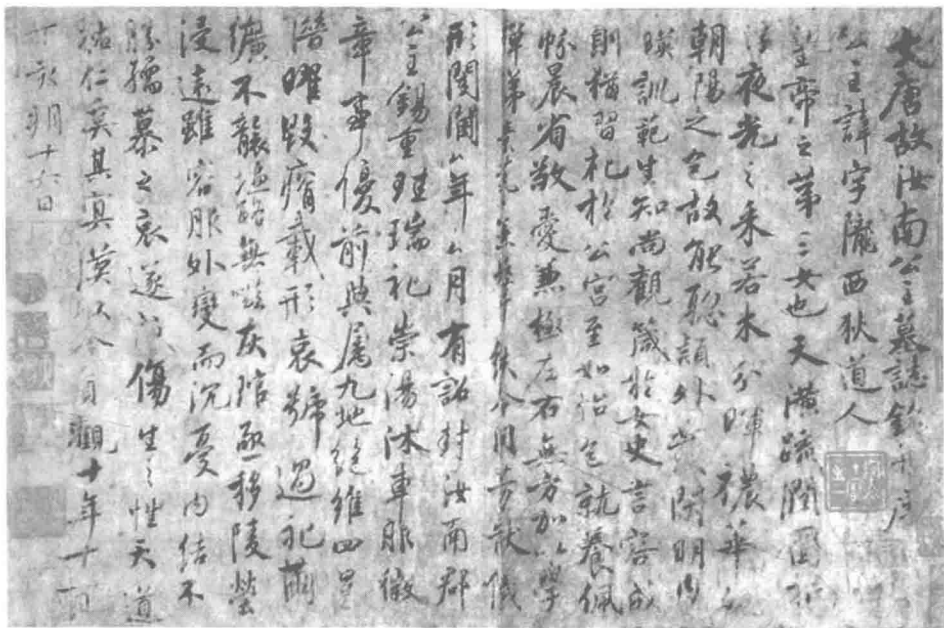 大唐故汝南公主墓誌銘并序
公主諱字隴西狄道人
皇帝之第三女也天潢疏潤圓折
浮夜光之采若木分暉穠華照
朝陽之色故能聰穎外發閑明內
映訓範生知尚觀箴於女史言容成
則猶習礼於公宮至如怡色就養佩
帉晨省敬愛兼極左右無方加以學
殫 兼 紩令問芳猷儀
形閨閫 年 月有詔封汝南郡
公主錫重珪瑞礼崇湯沐車服徽
章事優前典屬九地絕維四星
潛曜毀瘠載形哀號過礼繭
纊不襲鹽酪無嗞灰琯亟移陵塋
浸遠雖容服外變而沉憂內結不
勝孺慕之哀遂成傷生之性天道
祐仁奚其冥漠以今貞觀十年十一月
丁亥朔十六日